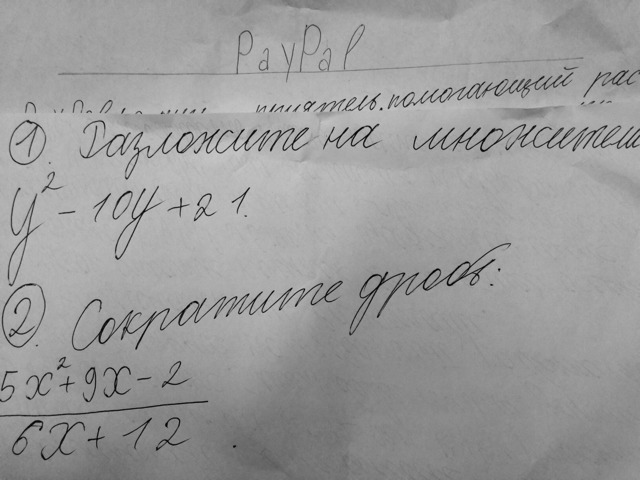 PayPal
приятель, помогающий рас
① Разложите на множител
y² - 10y + 21.
② Сократите дробь:
5x² + 9x - 2
6x + 12 .